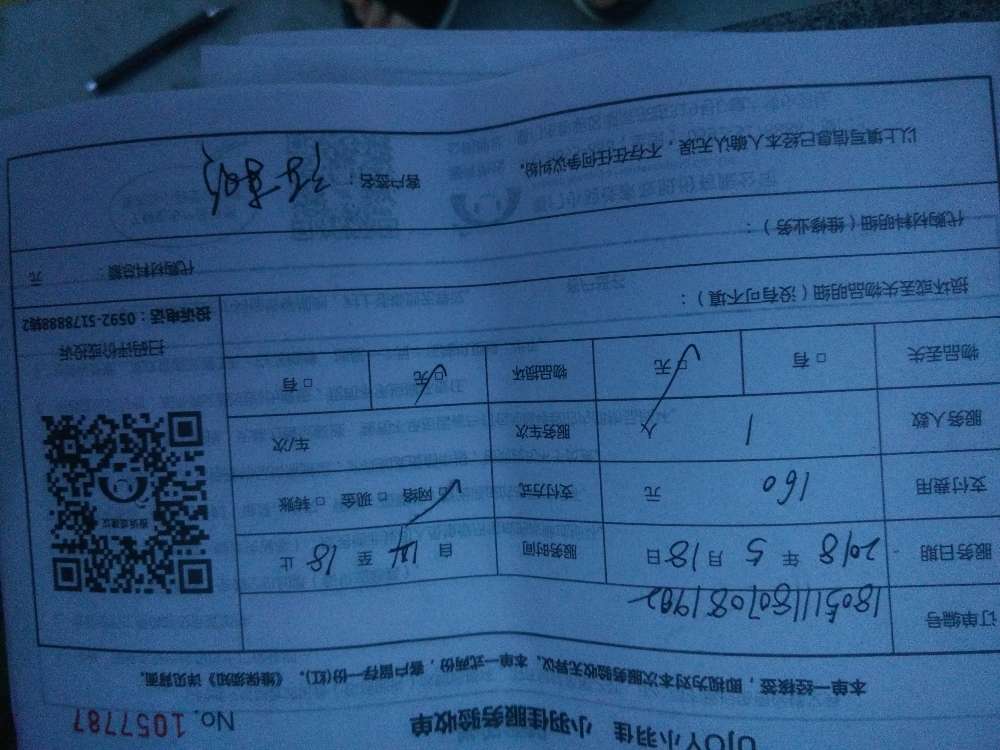 UJOY小羽佳 小羽佳服务验收单 No. 1057787
本单一经核签，即视为对本次服务验收无异议。本单一式两份，客户留存一份(红)。《维保须知》详见背面。
订单编号 1805111180708190²
服务日期 2018 年 5 月 18 日 服务时间 自 14 至 18 止
支付费用 160 元 支付方式 ☑ 网络 □ 现金 □ 转账
服务人数 1 人 服务车次 车/次
物品丢失 □ 有 ☑ 无 物品损坏 ☑ 无 □ 有
微信或建议
扫码评价或投诉
投诉电话：0592-5178888转2
损坏或丢失物品明细（没有可不填）：
代购材料明细（维修业务）：
代购材料总额： 元
以上填写信息已经本人确认无误，不存在任何争议纠纷。 客户签名：